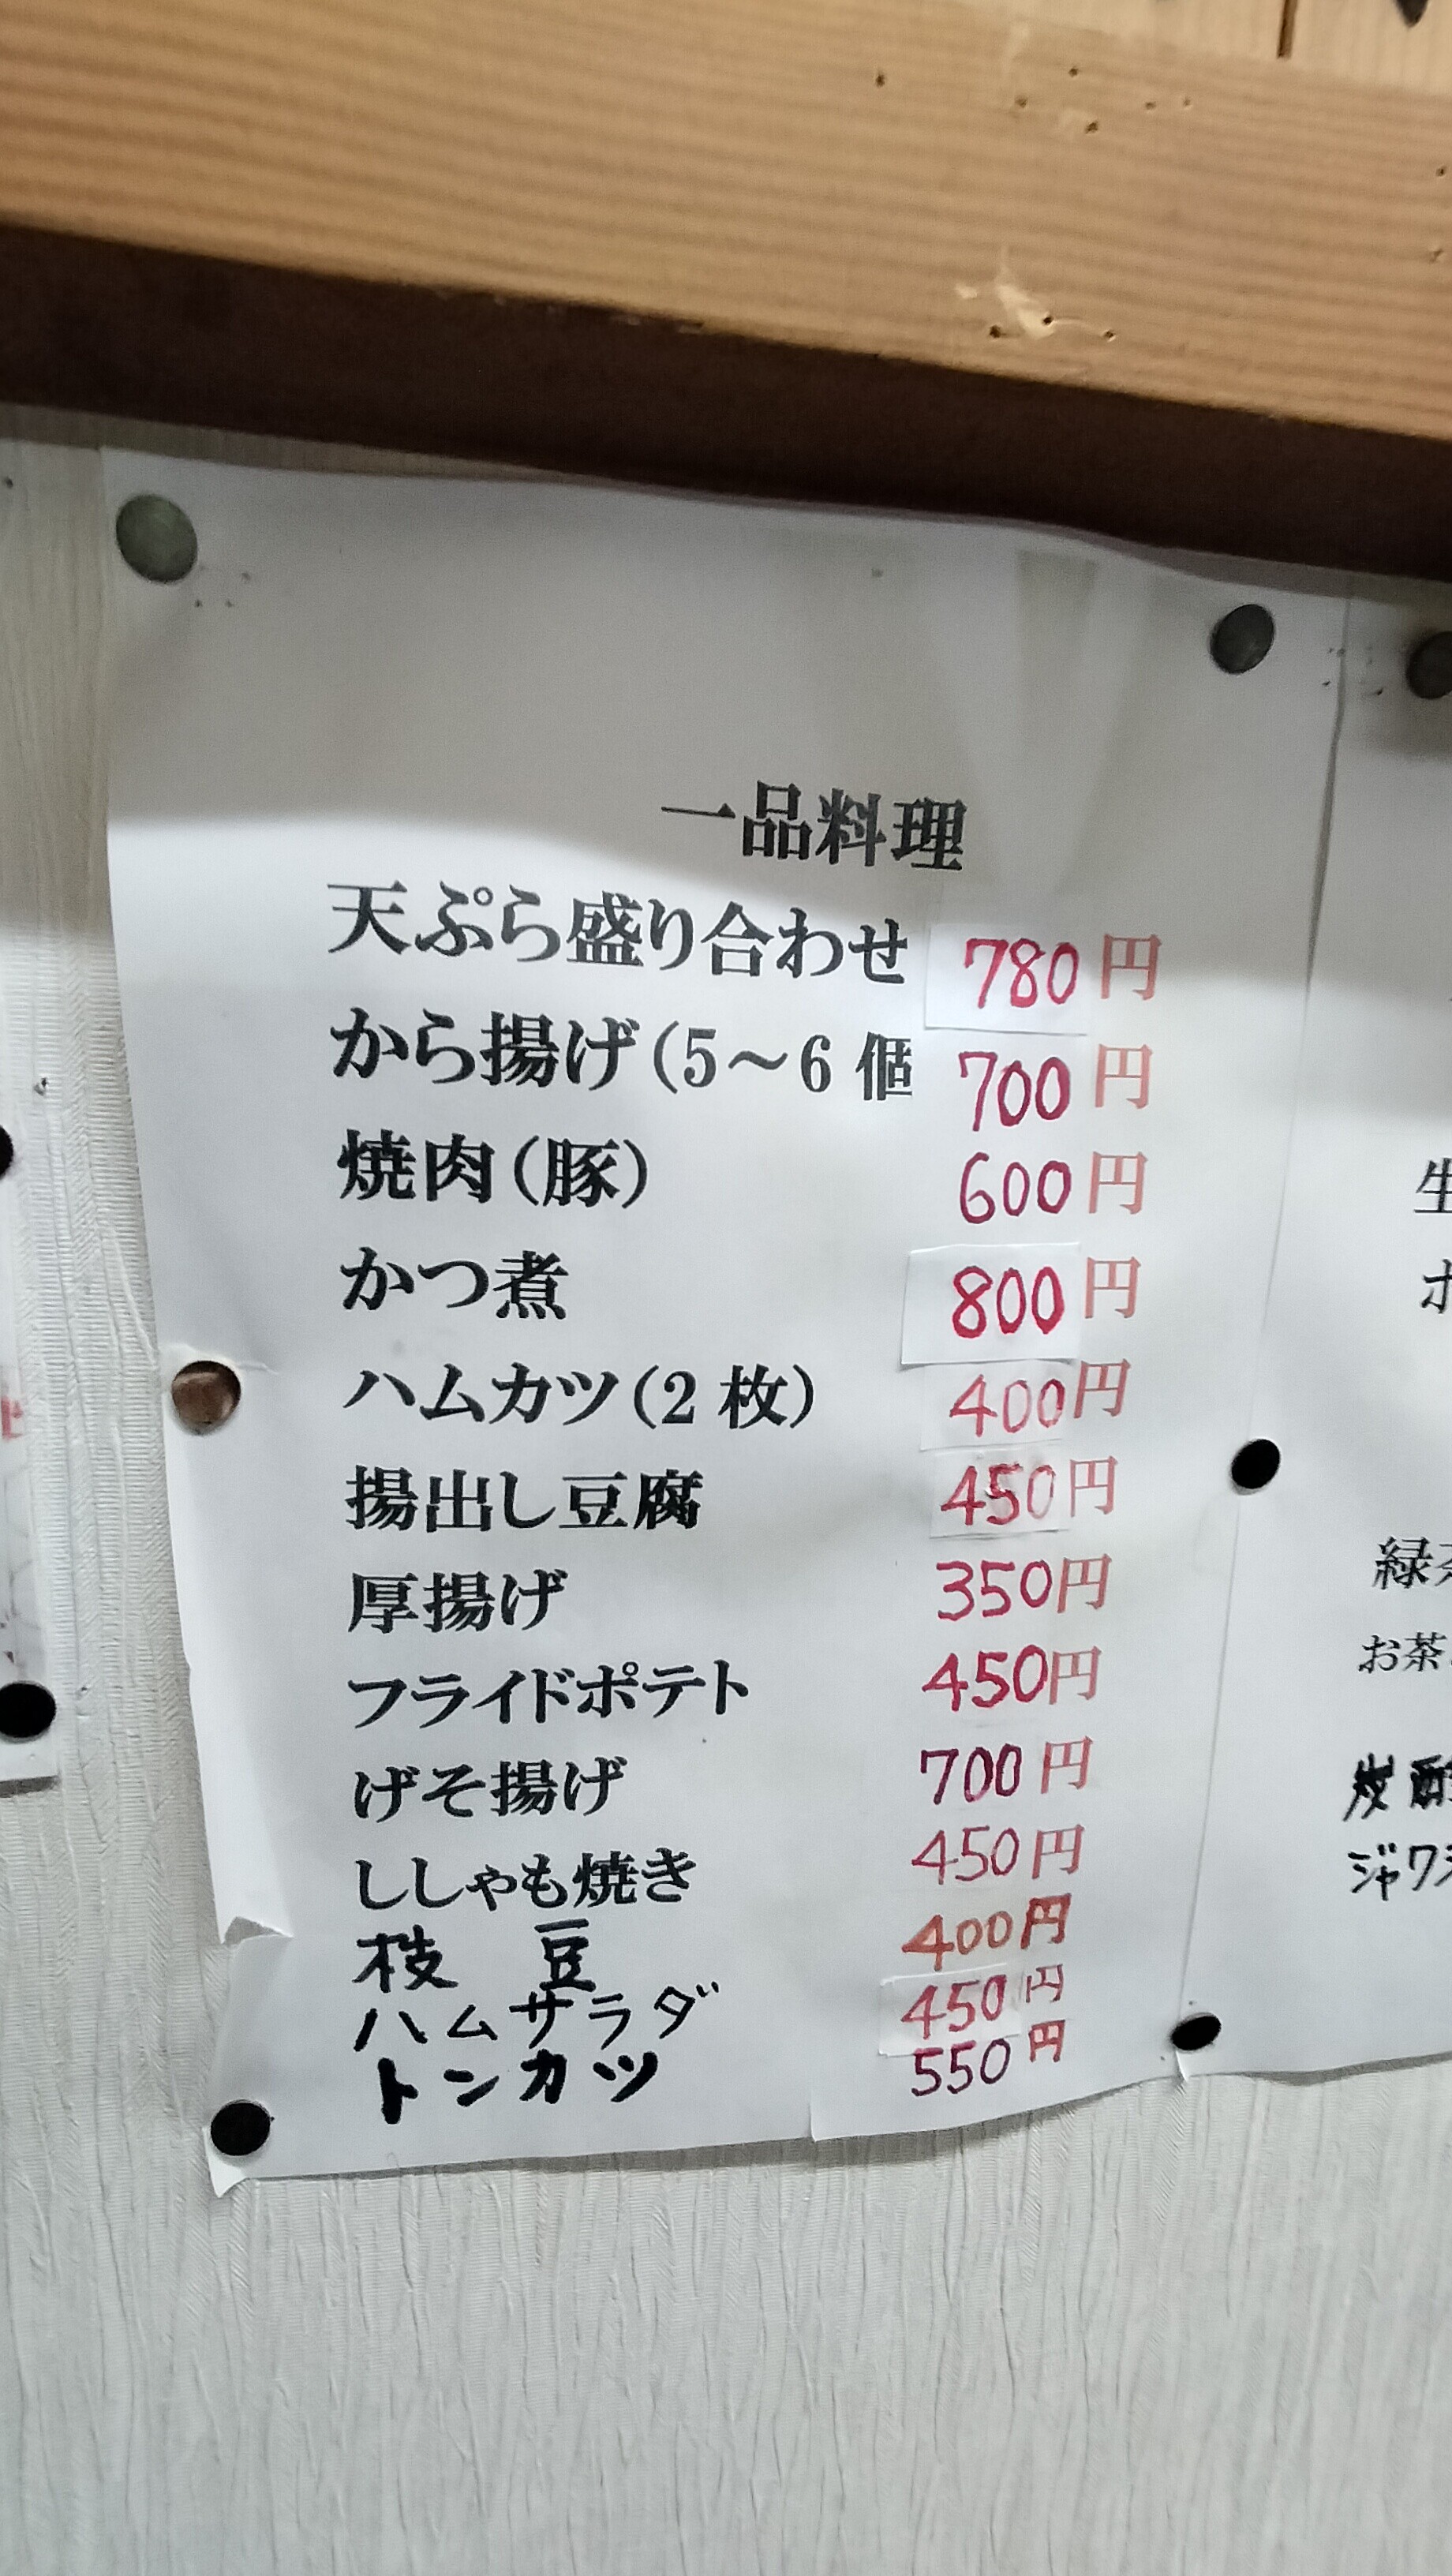 一品料理
天ぷら盛り合わせ 780円
から揚げ(5～6個 700円
焼肉(豚) 600円
かつ煮 800円
ハムカツ(2枚) 400円
揚出し豆腐 450円
厚揚げ 350円
フライドポテト 450円
げそ揚げ 700円
ししゃも焼き 450円
枝 豆 400円
ハムサラダ 450円
トンカツ 550円
生
ポ
緑茶
お茶
炭酸
ジャワ